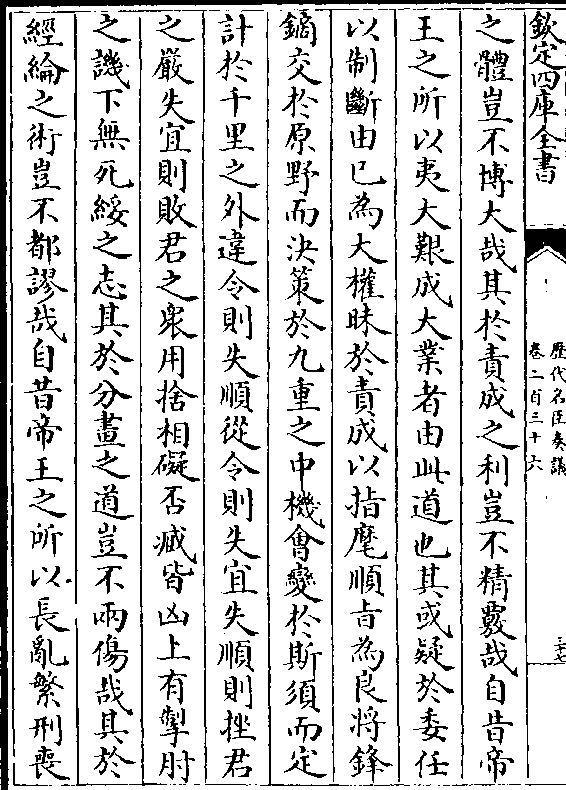 欽定四庫全書
歷代名臣奏議
卷二百三十六
三十七
之體豈不博大哉其於責成之利豈不精覈哉自昔帝
王之所以夷大艱成大業者由此道也其或疑於委任
以制斷由已為大權昧於責成以指麾順旨為良將鋒
鏑交於原野而決策於九重之中機會變於斯須而定
計於千里之外違令則失順從令則失宜失順則挫君
之嚴失宜則敗君之衆用捨相礙否臧皆凶上有掣肘
之譏下無死綏之志其於分畫之道豈不兩傷哉其於
經綸之術豈不都謬哉自昔帝王之所以長亂繁刑喪